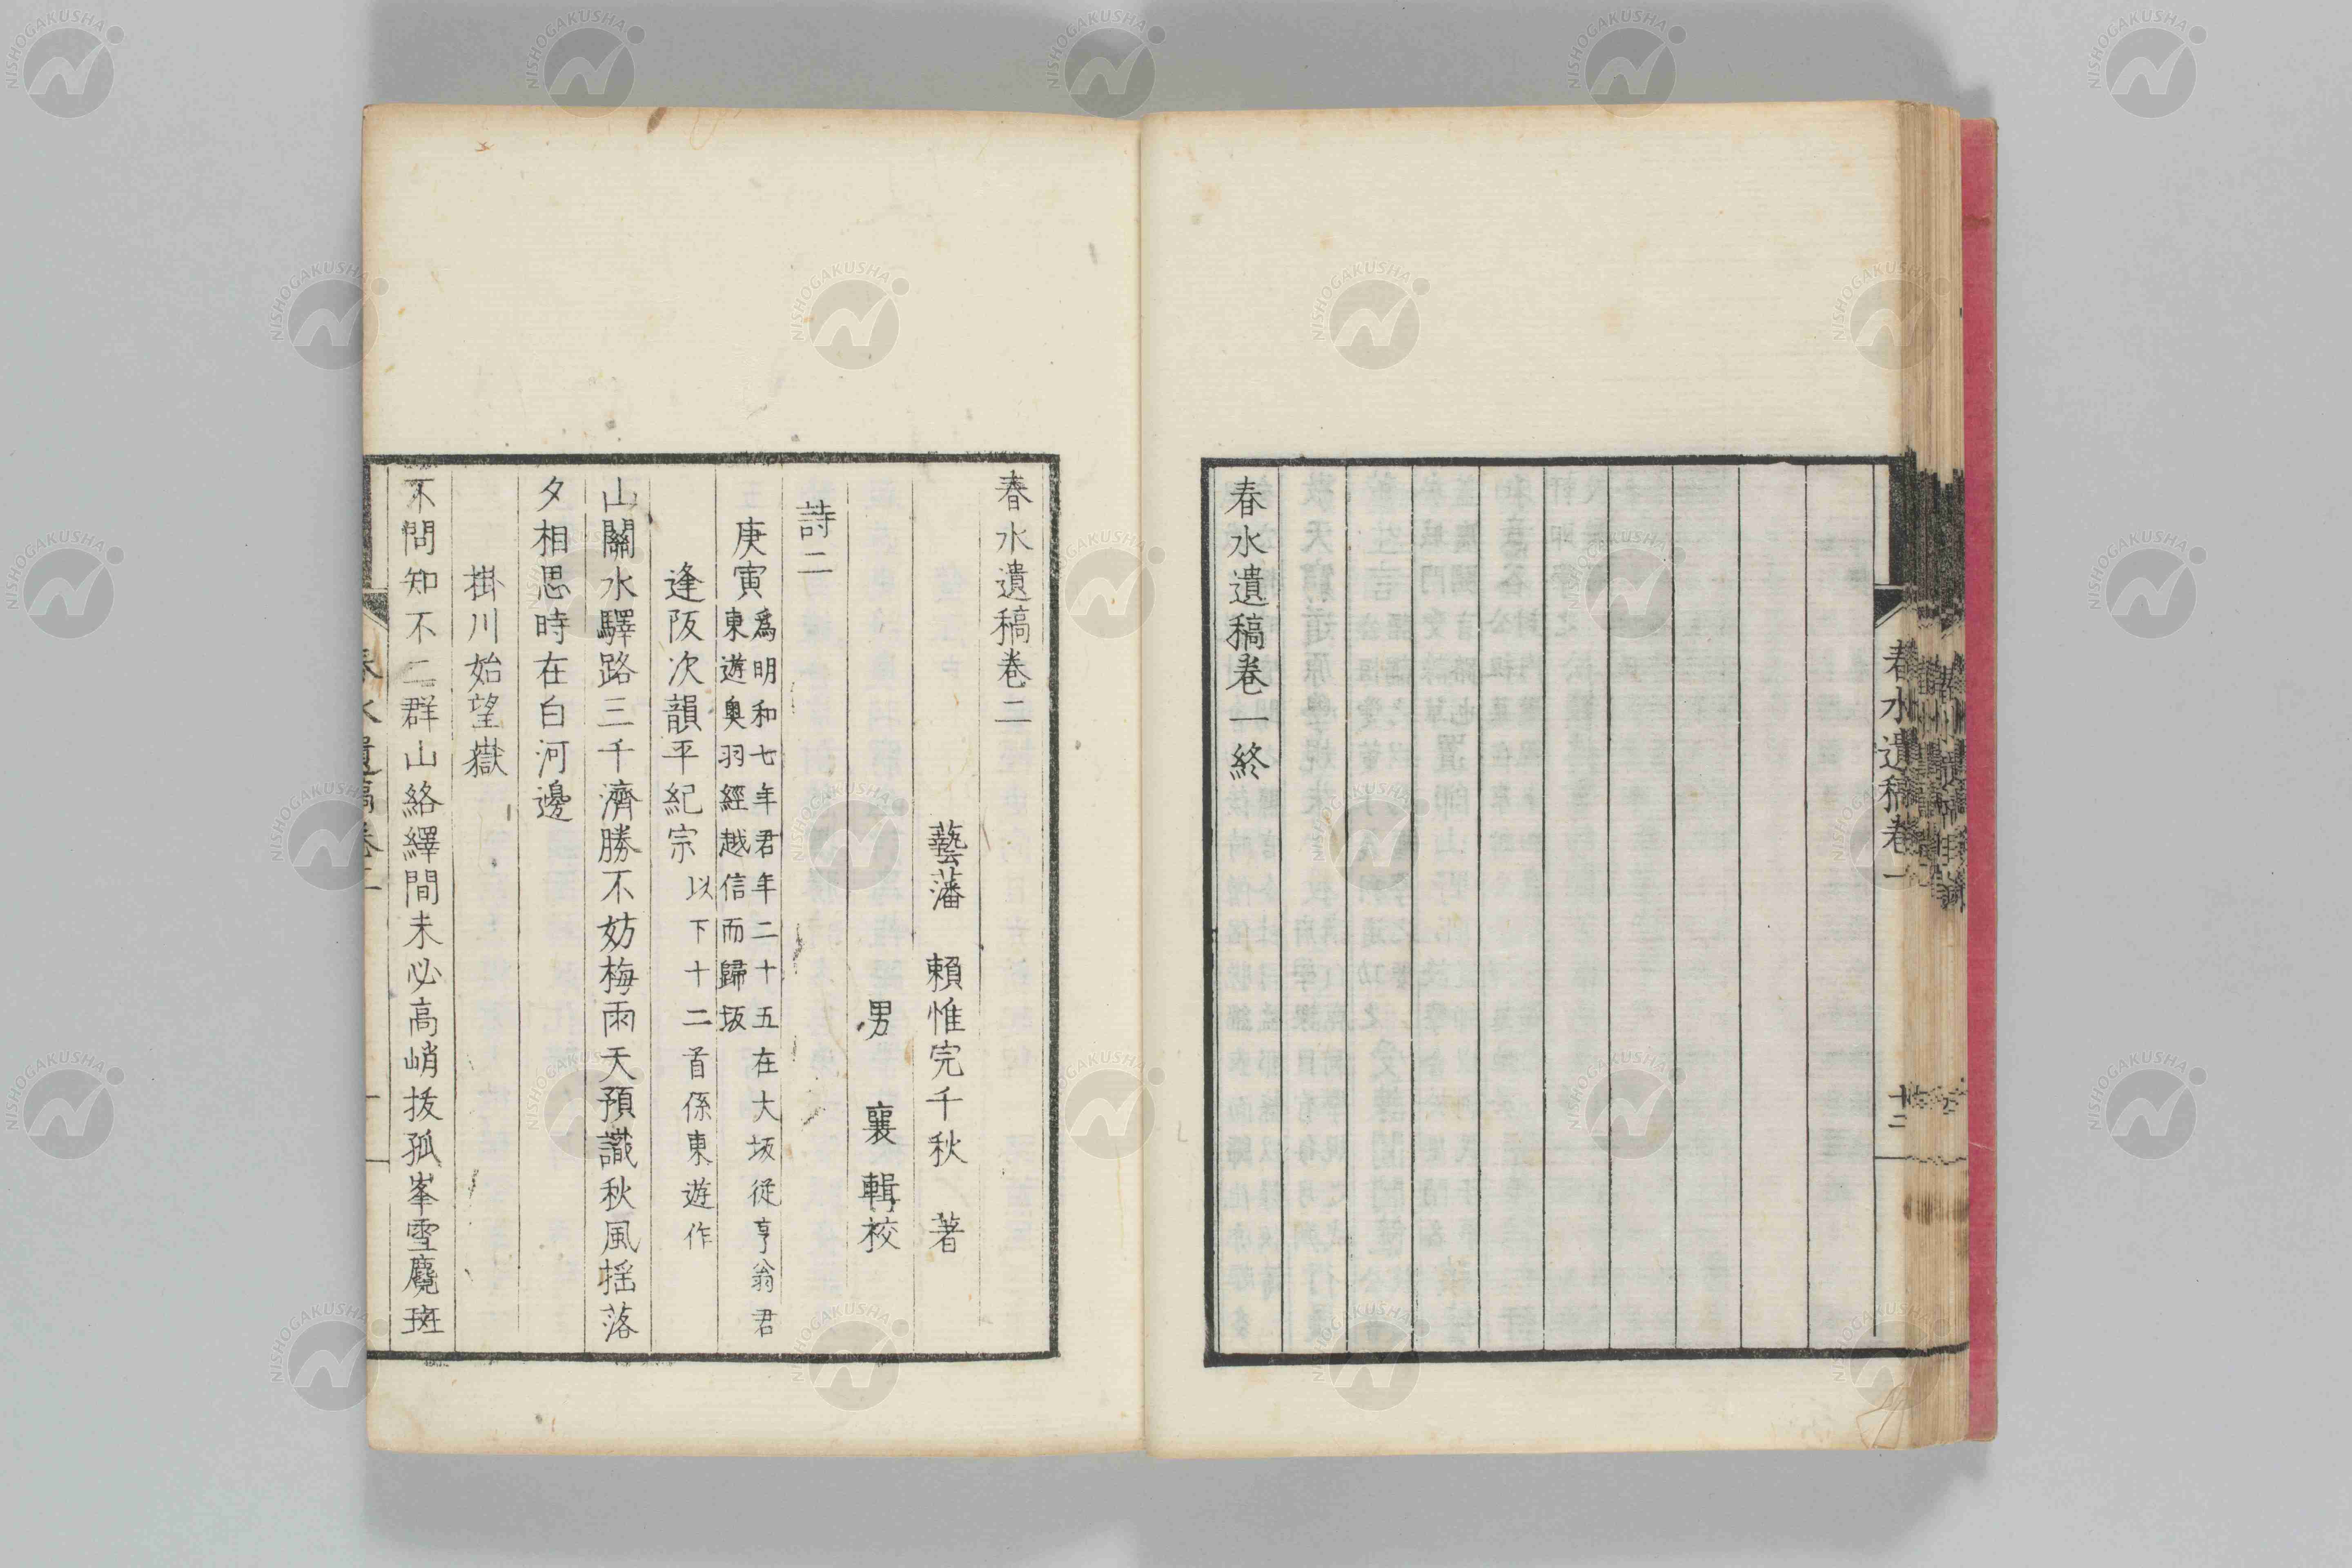 春水遺稿卷一
十二
春水遺稿卷一終
春水遺稿卷二
藝藩 賴惟完千秋 著
男 襄 輯校
詩二
庚寅
爲明和七年君年二十五在大坂從亨翁君
東遊奧羽經越信而歸坂
逢阪次韻平紀宗
以下十二首係東遊作
山關水驛路三千濟勝不妨梅雨天預識秋風搖落
夕相思時在白河邊
掛川始望嶽
不問知不二群山絡繹間未必高峭拔孤峯雪麑斑
NISHOGAKUSHA